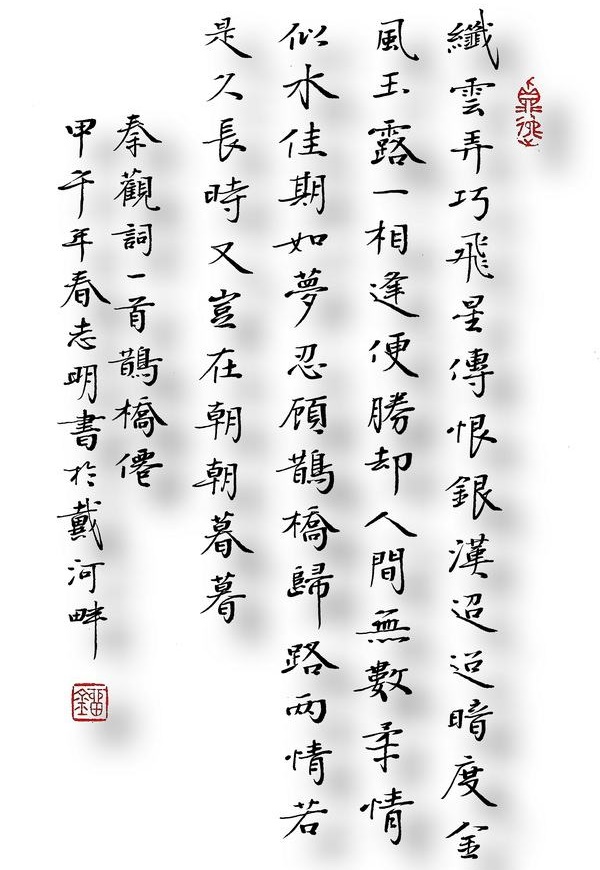 纖雲弄巧飛星傳恨銀漢迢迢暗度金
風玉露一相逢便勝却人間無數柔情
似水佳期如夢忍顧鵲橋歸路两情若
是久長時又豈在朝朝暮暮
秦觀詞一首鵲橋僊
甲午年春志明書於戴河畔